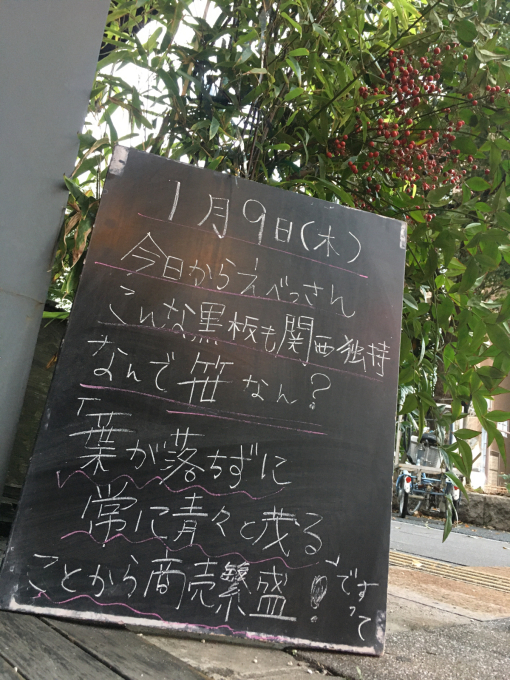 1月9日(木)
今日からえべっさん
こんな黒板も関西独特
なんで笹なん?
「葉が落ちずに
常に青々と茂る」
ことから商売繁盛!ですって